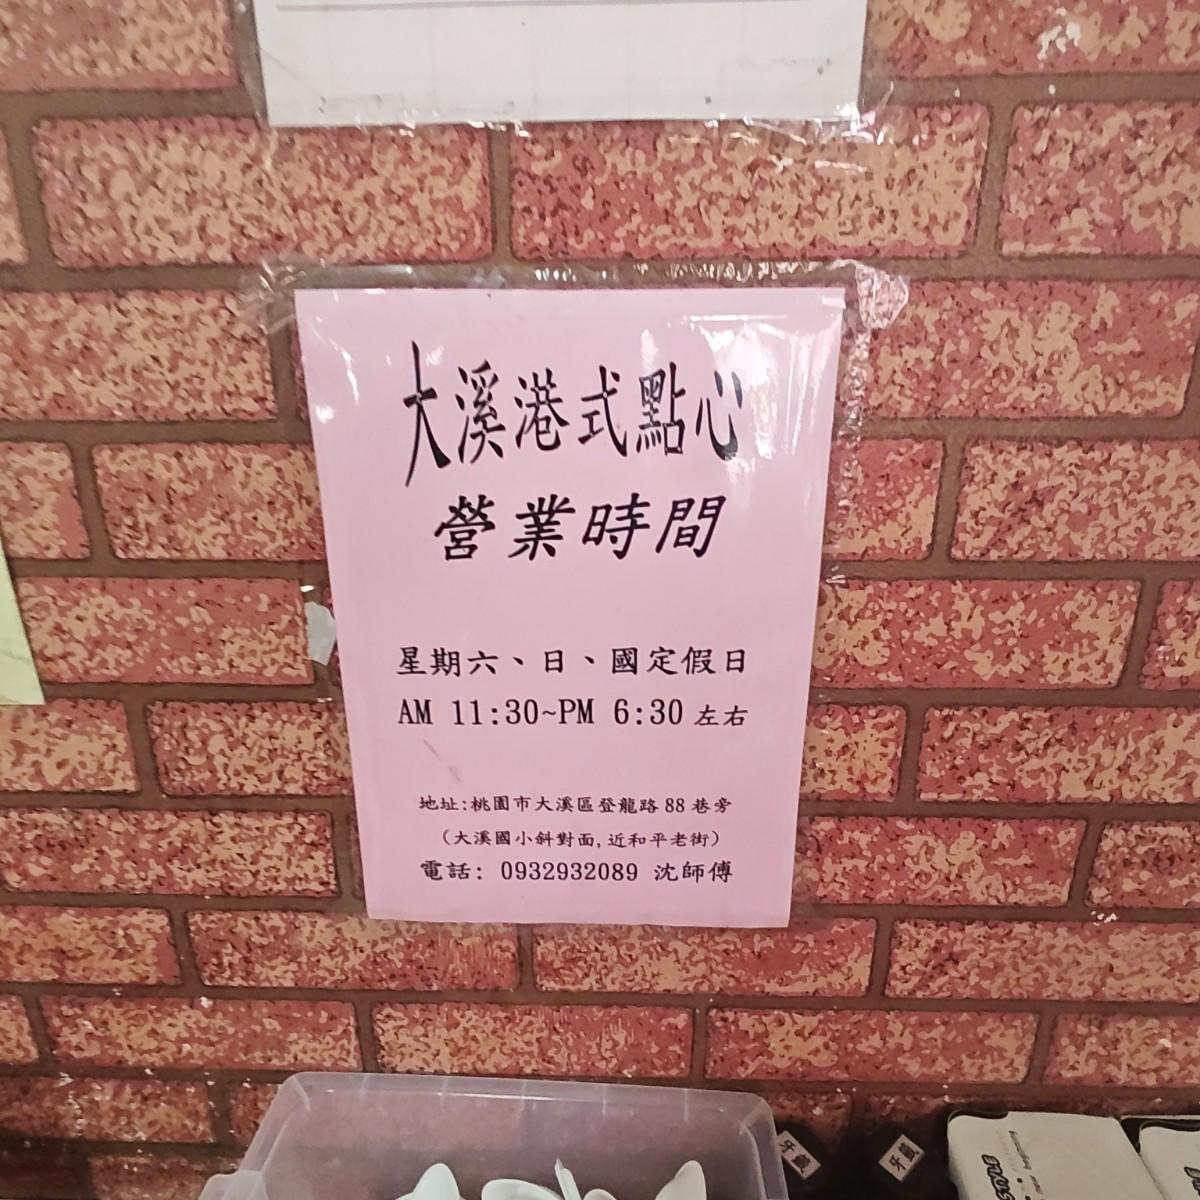 大溪港式點心
營業時間
星期六、日、國定假日
AM 11:30~PM 6:30 左右
地址:桃園市大溪區登龍路 88 巷旁
(大溪國小斜對面, 近和平老街)
電話: 0932932089 沈師傅
牙籤
牙籤
STYLE